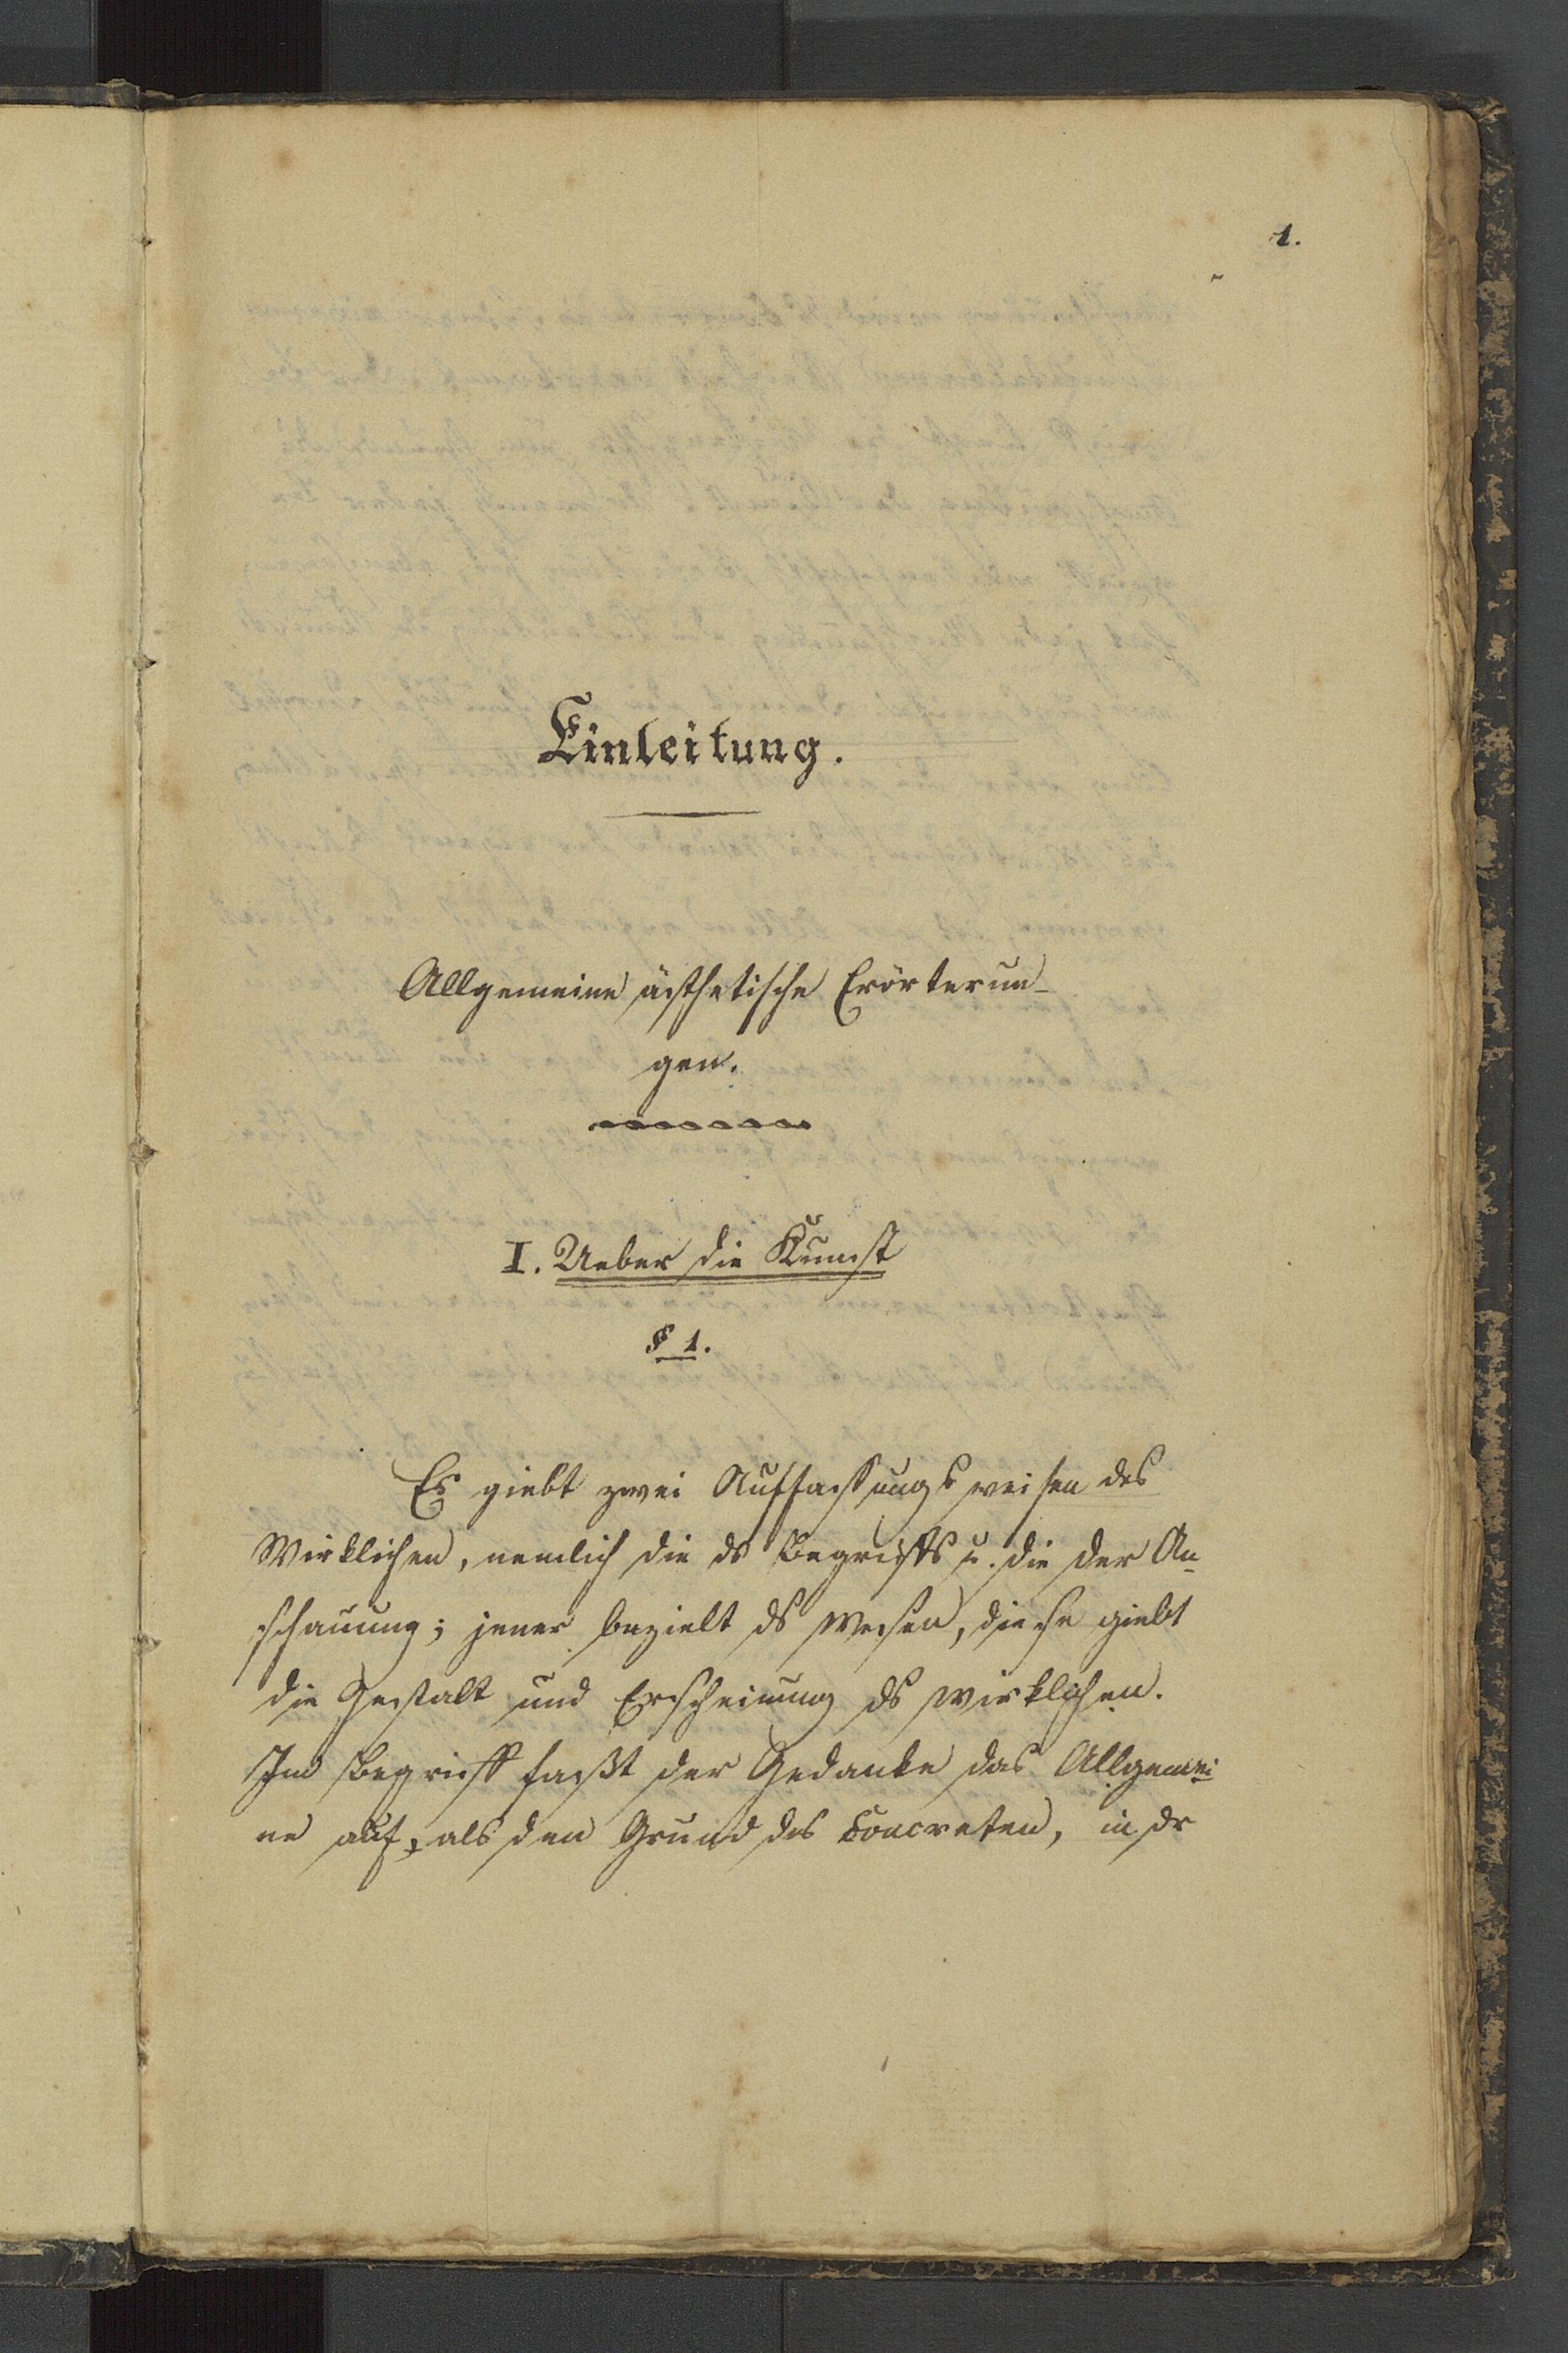 1.
Einleitung.
Allgemeine ästhetische Erörterun-
gen.
I. Ueber die Kunst
§ 1.
Es giebt zwei Auffassungsweisen des
Wirklichen, nemlich die ds Begriffs u. die der An-
schauung; jener bezielt ds Wesen, diese giebt
die Gestalt und Erscheinung ds Wirklichen.
Im Begriff faßt der Gedanke das Allgemei-
ne auf, als den Grund des Concreten, in dr